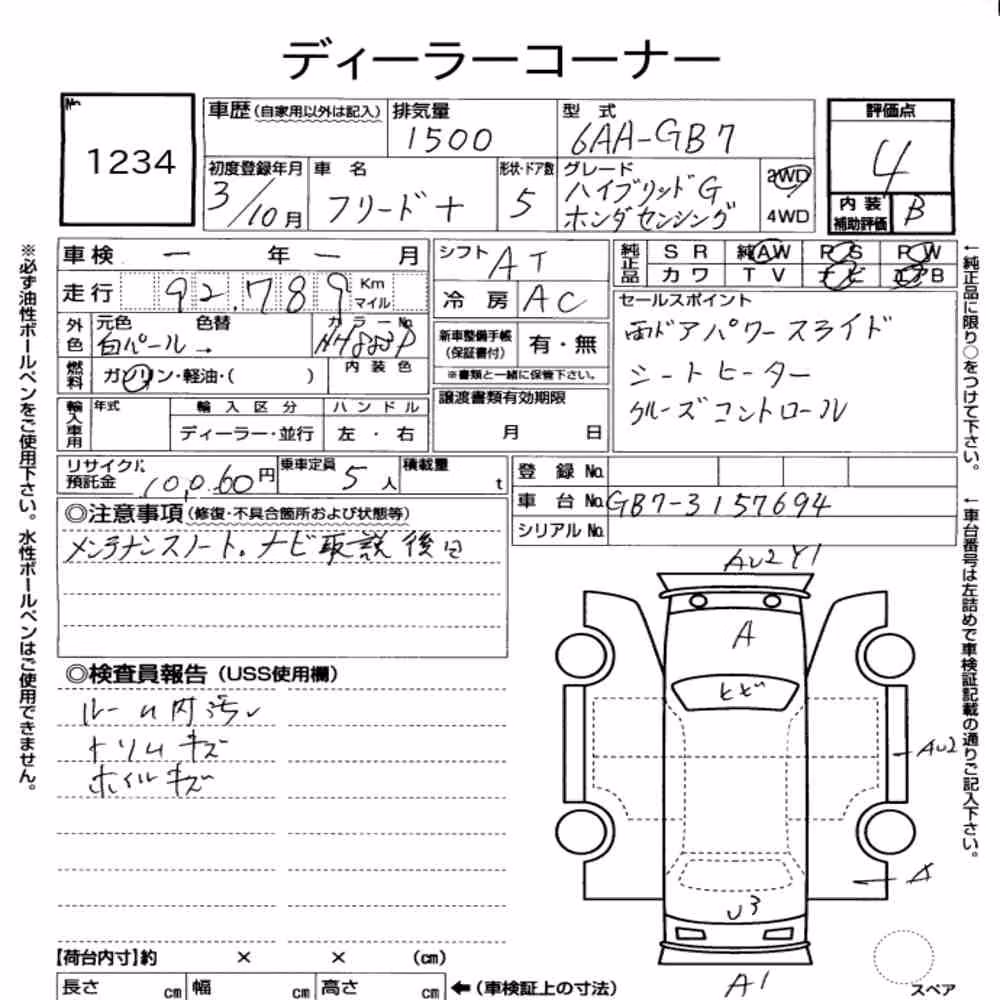 ディーラーコーナー
No.
1234
車歴(自家用以外は記入)
排気量
1500
型 式
6AA-GB7
評価点
4
初度登録年月
3/10月
車 名
フリード+
形状・ドア数
5
グレード
ハイブリッドG
ホンダセンシング
2WD
4WD
内 装
補助評価
B
車検 ー 年 ー 月
走行 92,789 Km
マイル
シフト AT
冷 房 AC
純正品
SR 純AW PS PW
カワ TV ナビ エアB
セールスポイント
両ドアパワースライド
シートヒーター
クルーズコントロール
外色
元色 色替 カラーNo.
白パール → NH883P
燃料
ガソリン・軽油・( )
内 装 色
新車整備手帳
(保証書付)
有・無
※書類と一緒に保管下さい。
譲渡書類有効期限
月 日
輸入車用
年式
輸 入 区 分
ハ ン ド ル
ディーラー・並行
左 ・ 右
リサイクル
預託金
10,060円
乗車定員
5人
積載量
t
登 録 No.
車 台 No. GB7-3157694
シリアル No.
◎注意事項(修復・不具合箇所および状態等)
メンテナンスノート。ナビ取説後日
◎検査員報告(USS使用欄)
ルーム内汚レ
トリムキズ
ホイルキズ
AU2 Y1
A
ヒビ
AU2
A
U3
A1
スペア
【荷台内寸】約 × × (cm)
長さ cm 幅 cm 高さ cm ←(車検証上の寸法)
※必ず油性ボールペンをご使用下さい。水性ボールペンはご使用できません。
←純正品に限り○をつけて下さい。
←車台番号は左詰めで車検証記載の通りご記入下さい。